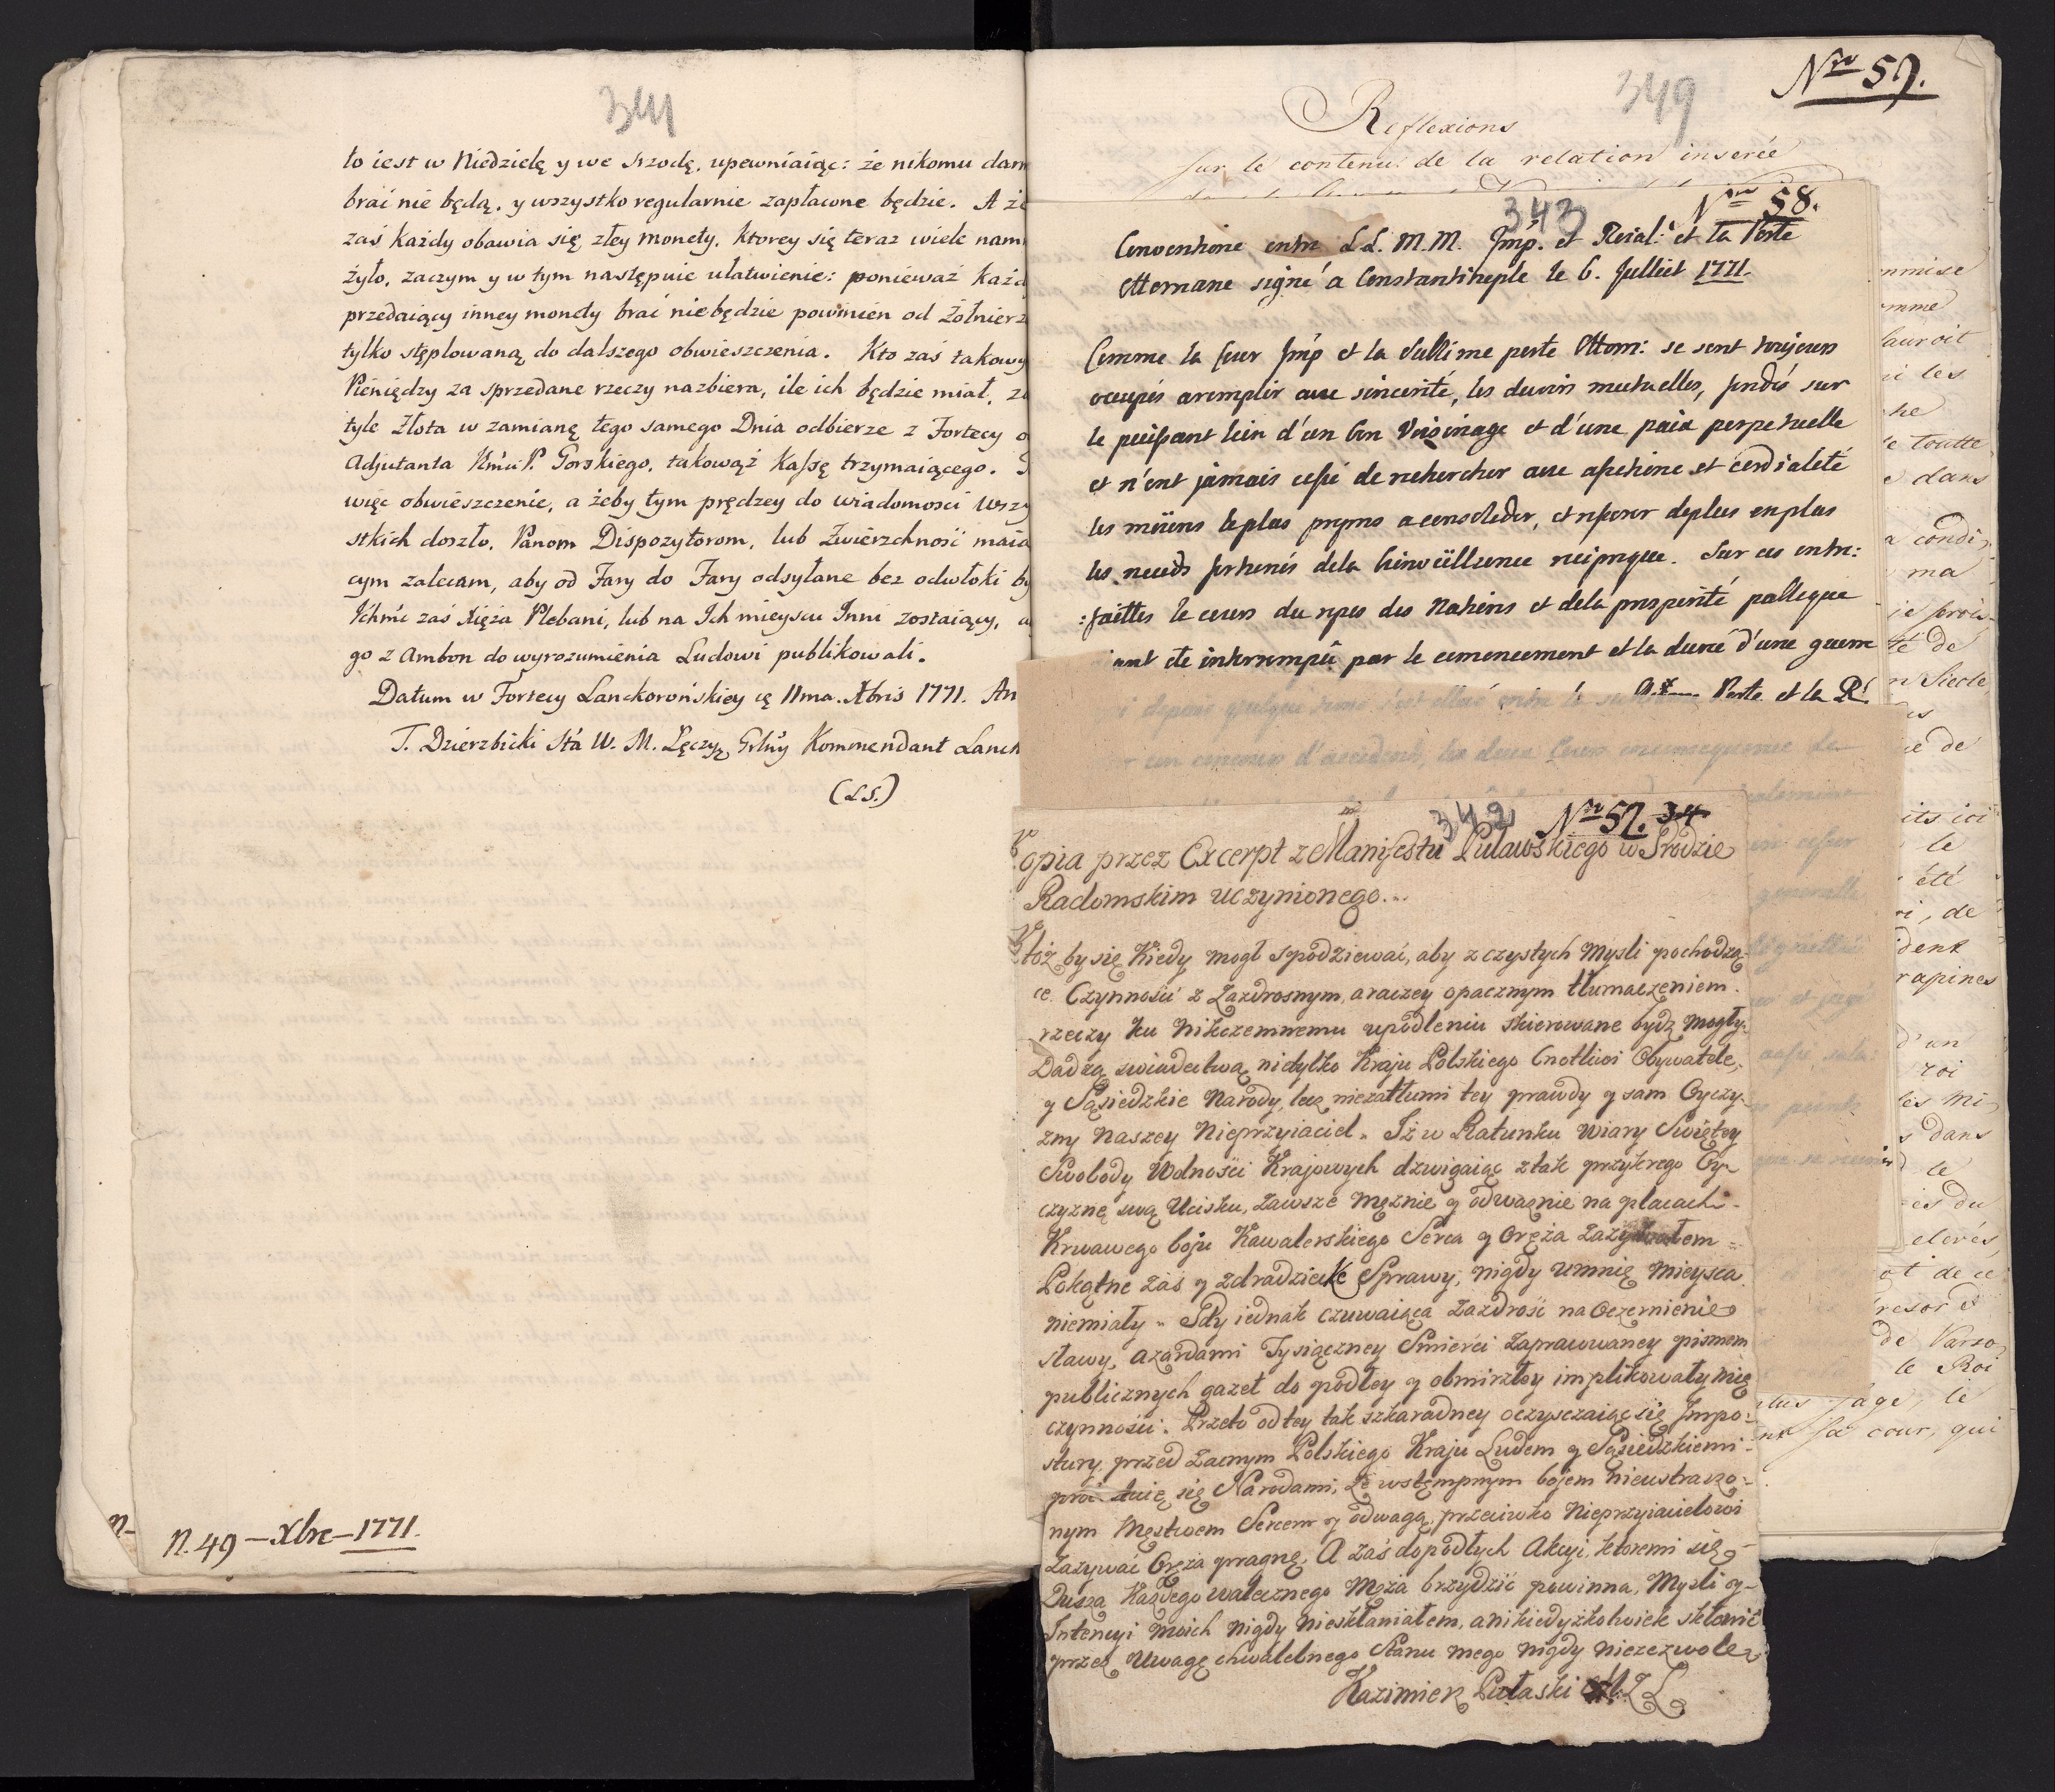 341
to iest w Niedzielę y we srzodę, upewniaiąc: że nikomu darm
brać nie będą, y wszystko regularnie zapłacone będzie. A że
zaś każdy obawia się złey monety, ktorey się teraz wiele nam
żyło, zaczym y w tym następuie ułatwienie: ponieważ każd
przedaiący inney monety brać nie będzie powinien od Żołnierz
tylko stęplowaną do dalszego obwieszczenia. Kto zaś takowy
Pieniędzy za sprzedane rzeczy nazbiera, ile ich będzie miał, z
tyle Złota w zamianę tego samego Dnia odbierze z Fortecy o
Adjutanta Gorskiego, takowąż Kassę trzymaiącego.
więc obwieszczenie, a żeby tym prędzey do wiadomosci wszy
stkich doszło, Panom Dispozytorom, lub Zwierzchność maią
cym zalecam, aby od Fary do Fary odsyłane bez odwłoki by
Ichmć zaś Xięża Plebani, lub na Ich mieyscu Inni zostaiący, a
go z Ambon do wyrozumienia Ludowi publikowali.
Datum w Fortecy Lanckorońskiey 11ma Xbris 1771. An
T. Dzierzbicki Stá W. M. Łęczyz Grlny Kommendant Lanck
(L.S.)
N. 49 – Xbre – 1771.
349
Nro 59.
Reflexions
sur le contenu de la relation inserée
343
Nro 58.
Conventione entre L.L. M.M. Imp. et Roial. et la Porte
Ottomane signé a Constantinople le 6. Julliet 1771.
Comme la Cour Imp et la Sublime porte Ottom: se sont toujours
occupés a remplir avec sincerité, les devoirs mutuelles, fondés sur
le puissant lien d'un bon Voisinage et d'une paix perpetuelle
et n'ont jamais cessé de rechercher avec afectione et cordialeté
les moiens le plus propres a consolider, et reserer de plus en plus
les neuds fortunés de la bienveüillence reciproque. Sur ces entre:
:faittes le cours du repos des Nations et de la prosperité publique
iant été interrompû par le comencement et la dureé d'une guerre
qui depuis quelque tems s'est elleveé entre la sublime Porte et la R.
par un concours d'accidents, les deux Cours en consequence de
342
Nro 57. 34
Kopia przez Excerpt z Manifestu Pulawskiego w Grodzie
Radomskim uczynionego...
Ktoż by się Kiedy mogł spodziewać, aby z czystych Mysli pochodzą-
ce Czynności z Zazdrosnym, araczey opacznym tłumaczeniem
rzeczy ku Nikczemnemu upodleniu skierowane bydz mogły.
Dadzą swiadectwa nietylko Kraju Polskiego Cnotliwi Obywatele,
y Sąsiedzkie Narody, lecz niezatłumi tey prawdy y sam Oyczy-
zny Naszey Nieprzyiaciel. Iż w Ratunku Wiary Swiętey
Swobody Wolności Krajowych dzwigaiąc z tak przykrego Oy-
czyznę swą Ucisku, zawsze mężnie y odważnie na placach
Krwawego boju Kawalerskiego Serca y Oręża zażywałem
Pokątne zaś y zdradzieckie Sprawy, nigdy u mnię mieysca
niemiały. Gdy iednak czuwaiąca Zazdrość na Oczernienie
sławy, azardami Tysiączney Smierci Zaprawwaney pismem
publicznych gazet do podłey y obmirzłey implikowały mię
czynności. Przeto od tey tak szkaradney oczysczaiąc się Impo:
stury, przed Zacnym Polskiego Kraju Ludem y Sąsiedzkiemi
się Narodami, że wstempnym bojem nieustraszo:
nym Męstwem Sercem y odwagą, przeciwko Nieprzyiacielowi
Zażywać Oręża pragnę, A zaś do podłych Akcyi, ktoremi się
Dusza Każdego walecznego Męża brzydzić powinna, Mysli y
Intencyi moich nigdy nieskłaniałem, ani kiedyżkolwiek skłonić
przez Uwagę chwalebnego Stanu mego nigdy niezezwolę
Kazimierz Pułaski
nmise
omme
lauroit
ni les
che
e toutte
e dans
a condi
ma
té de
n Siecle,
ue de
its ici
le
été
oi, de
ident
rapines
d'un
roi
les mi
s dans
le
es du
elevés,
ot de ce
resor &
de Varso
le Roi
plus sage, le
sa cour, qui